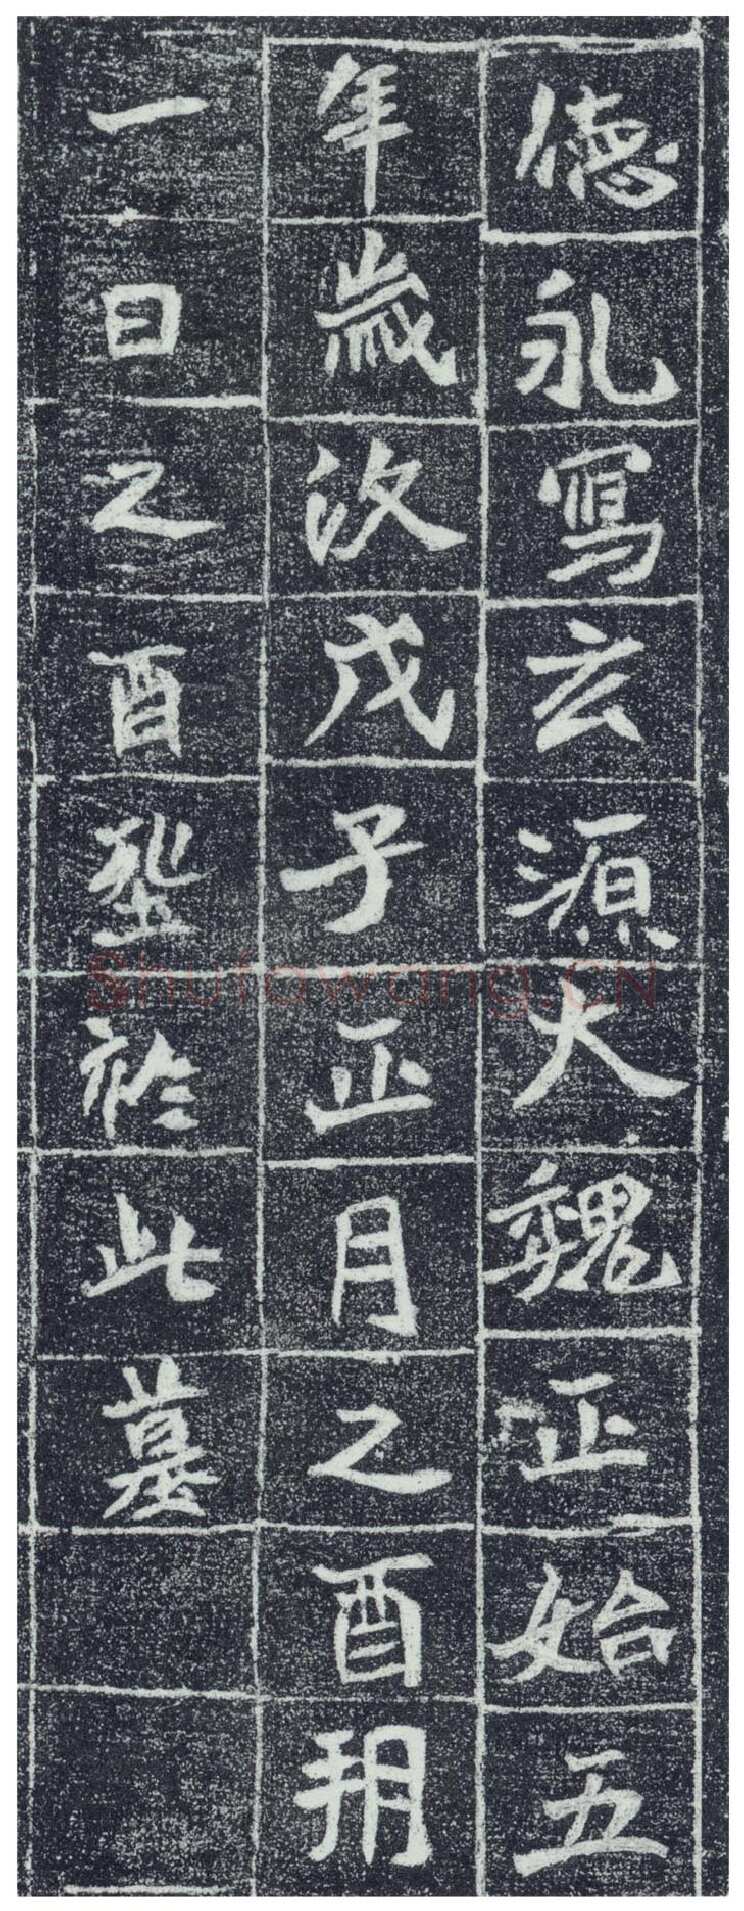 德永寫玄源大魏正始五
年歲次戊子正月之酉朔
一日之酉於此墓
Shufawang.CN